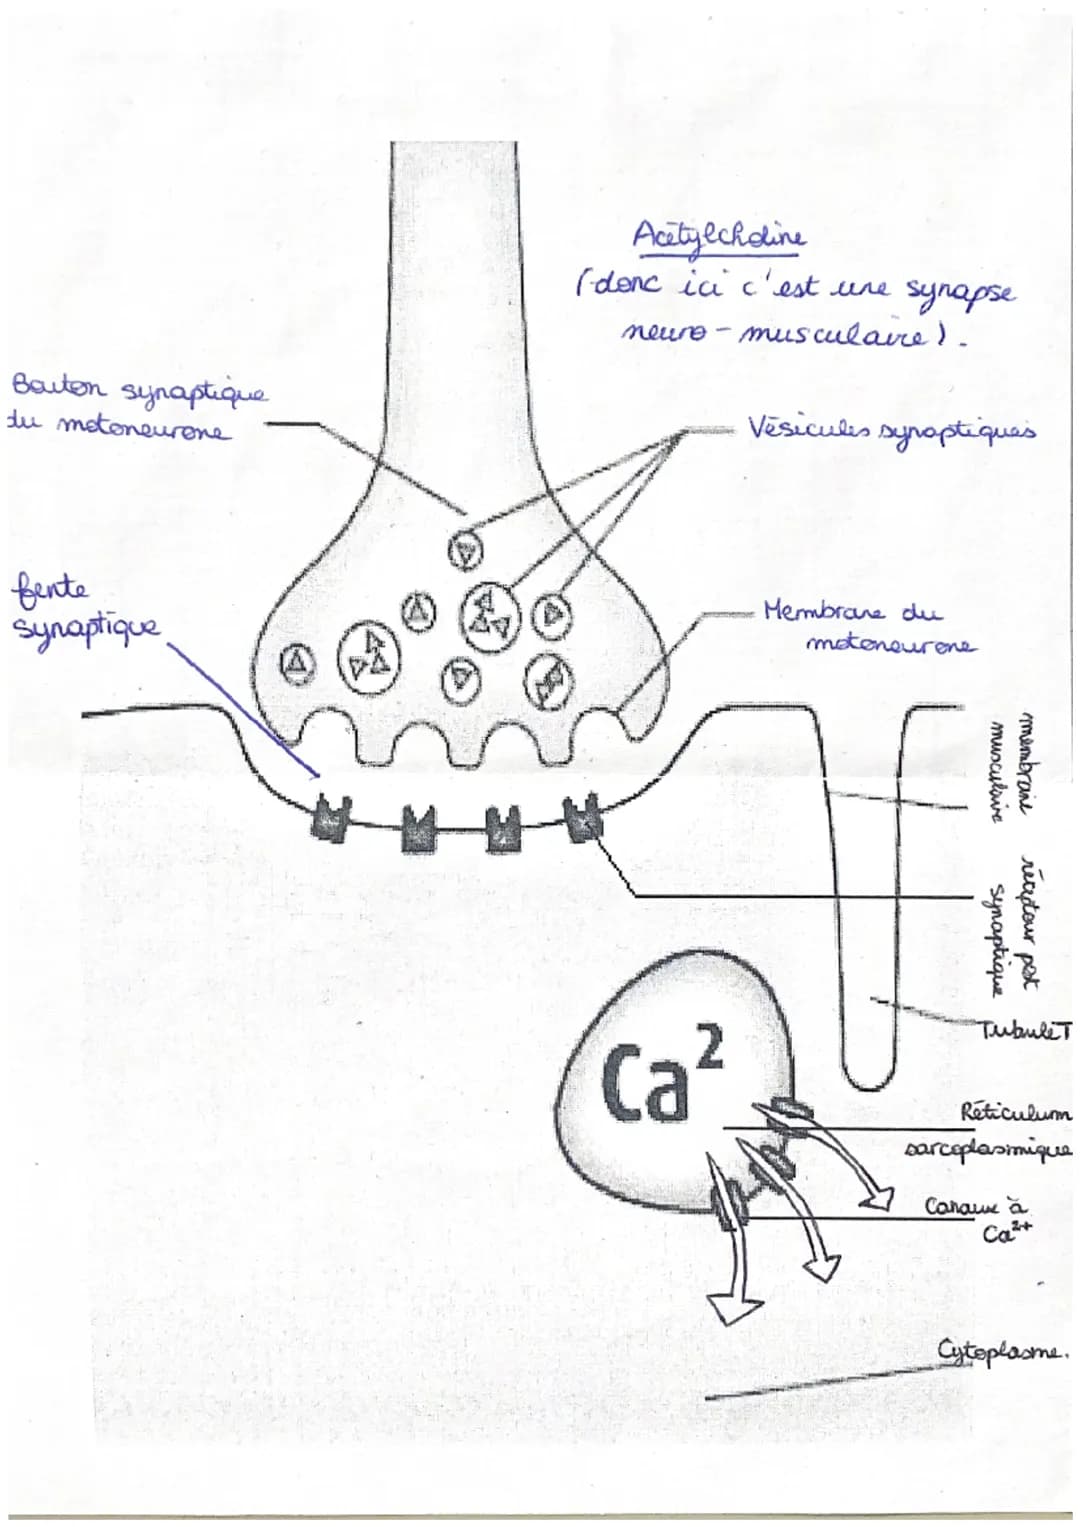 Acétylcholine
(donc ici c'est une synapse
neuro-musculaire).
Bouton synaptique
du motoneurone
Vésicules synaptiques
fente
synaptique
Membrane du
motoneurone
membrane
musculaire
récepteur post
synaptique
Tubule T
Ca2
Réticulum
sarcoplasmique
Canaux à
Ca2+
Cytoplasme.